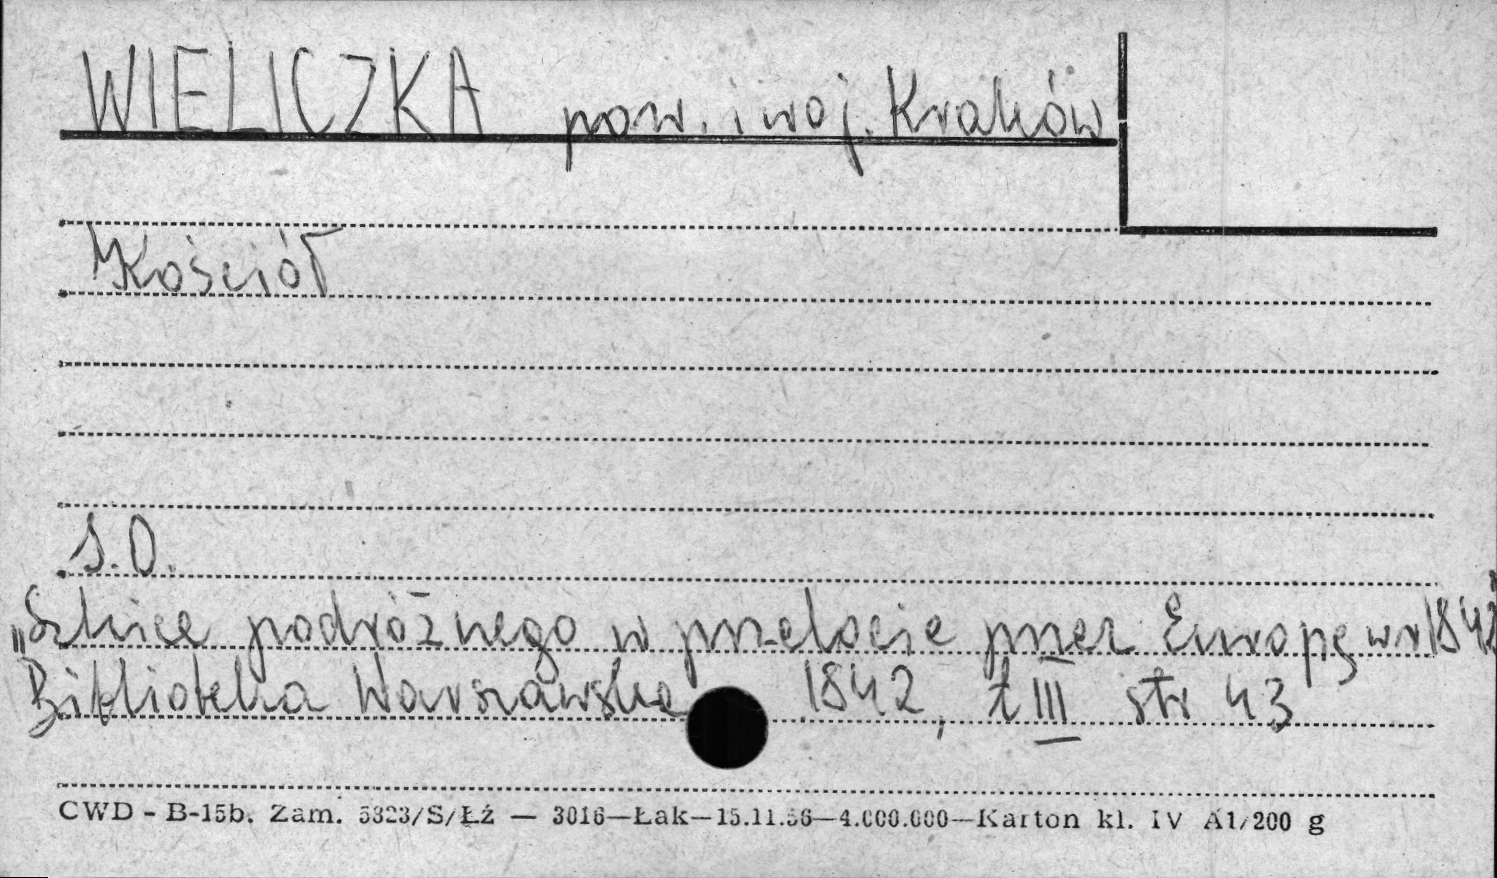 WIELICZKA pow. i woj. Kraków
Kościół
S.O.
„Szkice podróżnego w przelocie przez Europę w r 1842"
Biblioteka Warszawska 1842, t III str 43
CWD - B-15b. Zam. 5323/S/Łź — 3016—Łak—15.11.56—4.000.000—Karton kl. IV A1/200 g